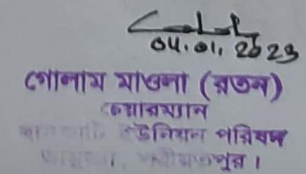 04.01.2023
গোলাম মাওলা (রতন)
চেয়ারম্যান
ইউনিয়ন পরিষদ
শরীয়তপুর।